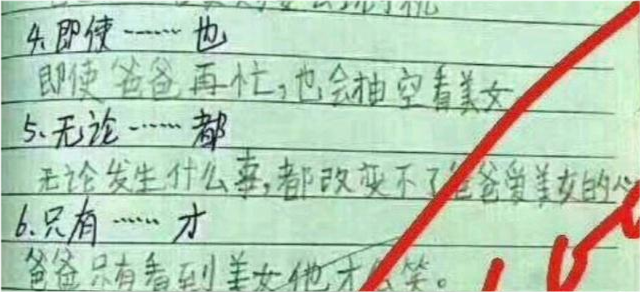 4.即使……也
即使爸爸再忙,也会抽空看美女
5.无论……都
无论发生什么事,都改变不了爸爸爱美女的心
6.只有……才
爸爸只有看到美女他才会笑。
100